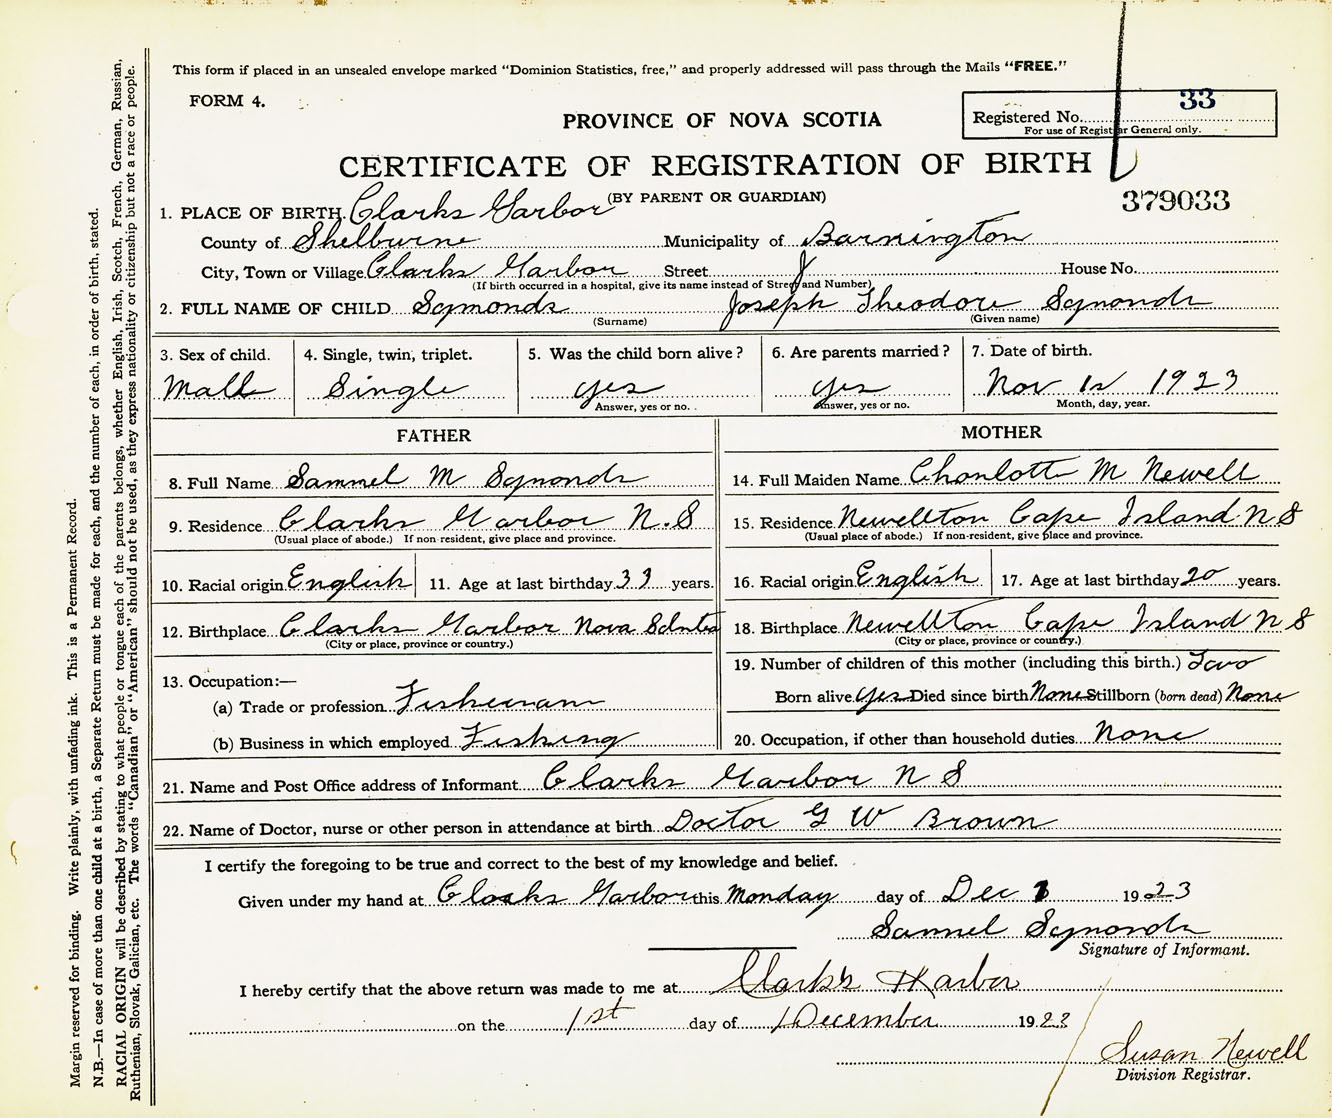 This form if placed in an unsealed envelope marked "Dominion Statistics, free," and properly addressed will pass through the Mails "FREE."
FORM 4.
Registered No. 33
For use of Registrar General only.
PROVINCE OF NOVA SCOTIA
CERTIFICATE OF REGISTRATION OF BIRTH
(BY PARENT OR GUARDIAN)
379033
1. PLACE OF BIRTH. Clarks Harbor
County of Shelburne Municipality of Barrington
City, Town or Village Clarks Harbor Street House No.
(If birth occurred in a hospital, give its name instead of Street and Number)
2. FULL NAME OF CHILD Symonds Joseph Theodore Symonds
(Surname) (Given name)
3. Sex of child. 4. Single, twin, triplet. 5. Was the child born alive? 6. Are parents married? 7. Date of birth.
Male Single yes yes Nov 1923
Answer, yes or no. Answer, yes or no. Month, day, year.
FATHER MOTHER
8. Full Name Samuel M Symonds 14. Full Maiden Name Charlotte M Newell
9. Residence Clarks Harbor N.S 15. Residence Newellton Cape Island N S
(Usual place of abode.) If non-resident, give place and province. (Usual place of abode.) If non-resident, give place and province.
10. Racial origin English 11. Age at last birthday 33 years. 16. Racial origin English 17. Age at last birthday 20 years.
12. Birthplace Clarks Harbor Nova Scotia 18. Birthplace Newellton Cape Island N S
(City or place, province or country.) (City or place, province or country.)
13. Occupation:— 19. Number of children of this mother (including this birth.) Two
(a) Trade or profession Fisherman Born alive yes Died since birth None Stillborn (born dead) None
(b) Business in which employed Fishing 20. Occupation, if other than household duties None
21. Name and Post Office address of Informant Clarks Harbor N S
22. Name of Doctor, nurse or other person in attendance at birth Doctor G W Brown
I certify the foregoing to be true and correct to the best of my knowledge and belief.
Given under my hand at Clarks Harbor this Monday day of Dec 1923
Samuel Symonds
Signature of Informant.
I hereby certify that the above return was made to me at Clark's Harbor
on the 1st day of December 1923
Susan Newell
Division Registrar.
Margin reserved for binding. Write plainly, with unfading ink. This is a Permanent Record.
N.B.—In case of more than one child at a birth, a Separate Return must be made for each, and the number of each, in order of birth, stated.
RACIAL ORIGIN will be described by stating to what people or tongue each of the parents belongs, whether English, Irish, Scotch, French, German, Russian,
Ruthenian, Slovak, Galician, etc. The words "Canadian" or "American" should not be used, as they express nationality or citizenship but not a race or people.